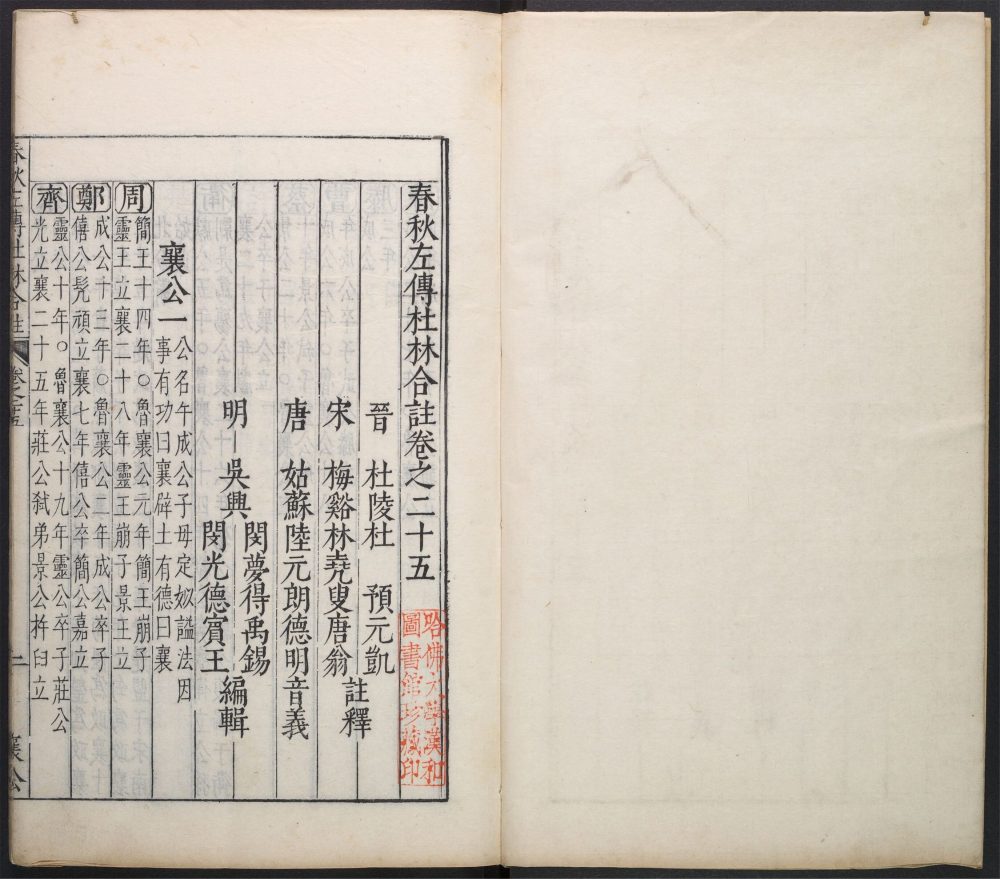 春秋左傳杜林合註卷之二十五
哈佛大學漢和
圖書館珍藏印
晉 杜陵杜 預元凱
宋 梅谿林堯叟唐翁
註釋
唐 姑蘇陸元朗德明音義
明 吳興
閔夢得禹錫
閔光德賓王
編輯
襄公一
公名午成公子母定姒謚法因
事有功曰襄辟土有德曰襄
周
簡王十四年○魯襄公元年簡王崩子
靈王立襄二十八年靈王崩子景王立
鄭
成公十三年○魯襄公二年成公卒子
僖公髠頑立襄七年僖公卒簡公嘉立
齊
靈公十年○魯襄公十九年靈公卒子莊公
光立襄二十五年莊公弒弟景公杵臼立
春秋左傳杜林合註
卷之二十五
一
襄公